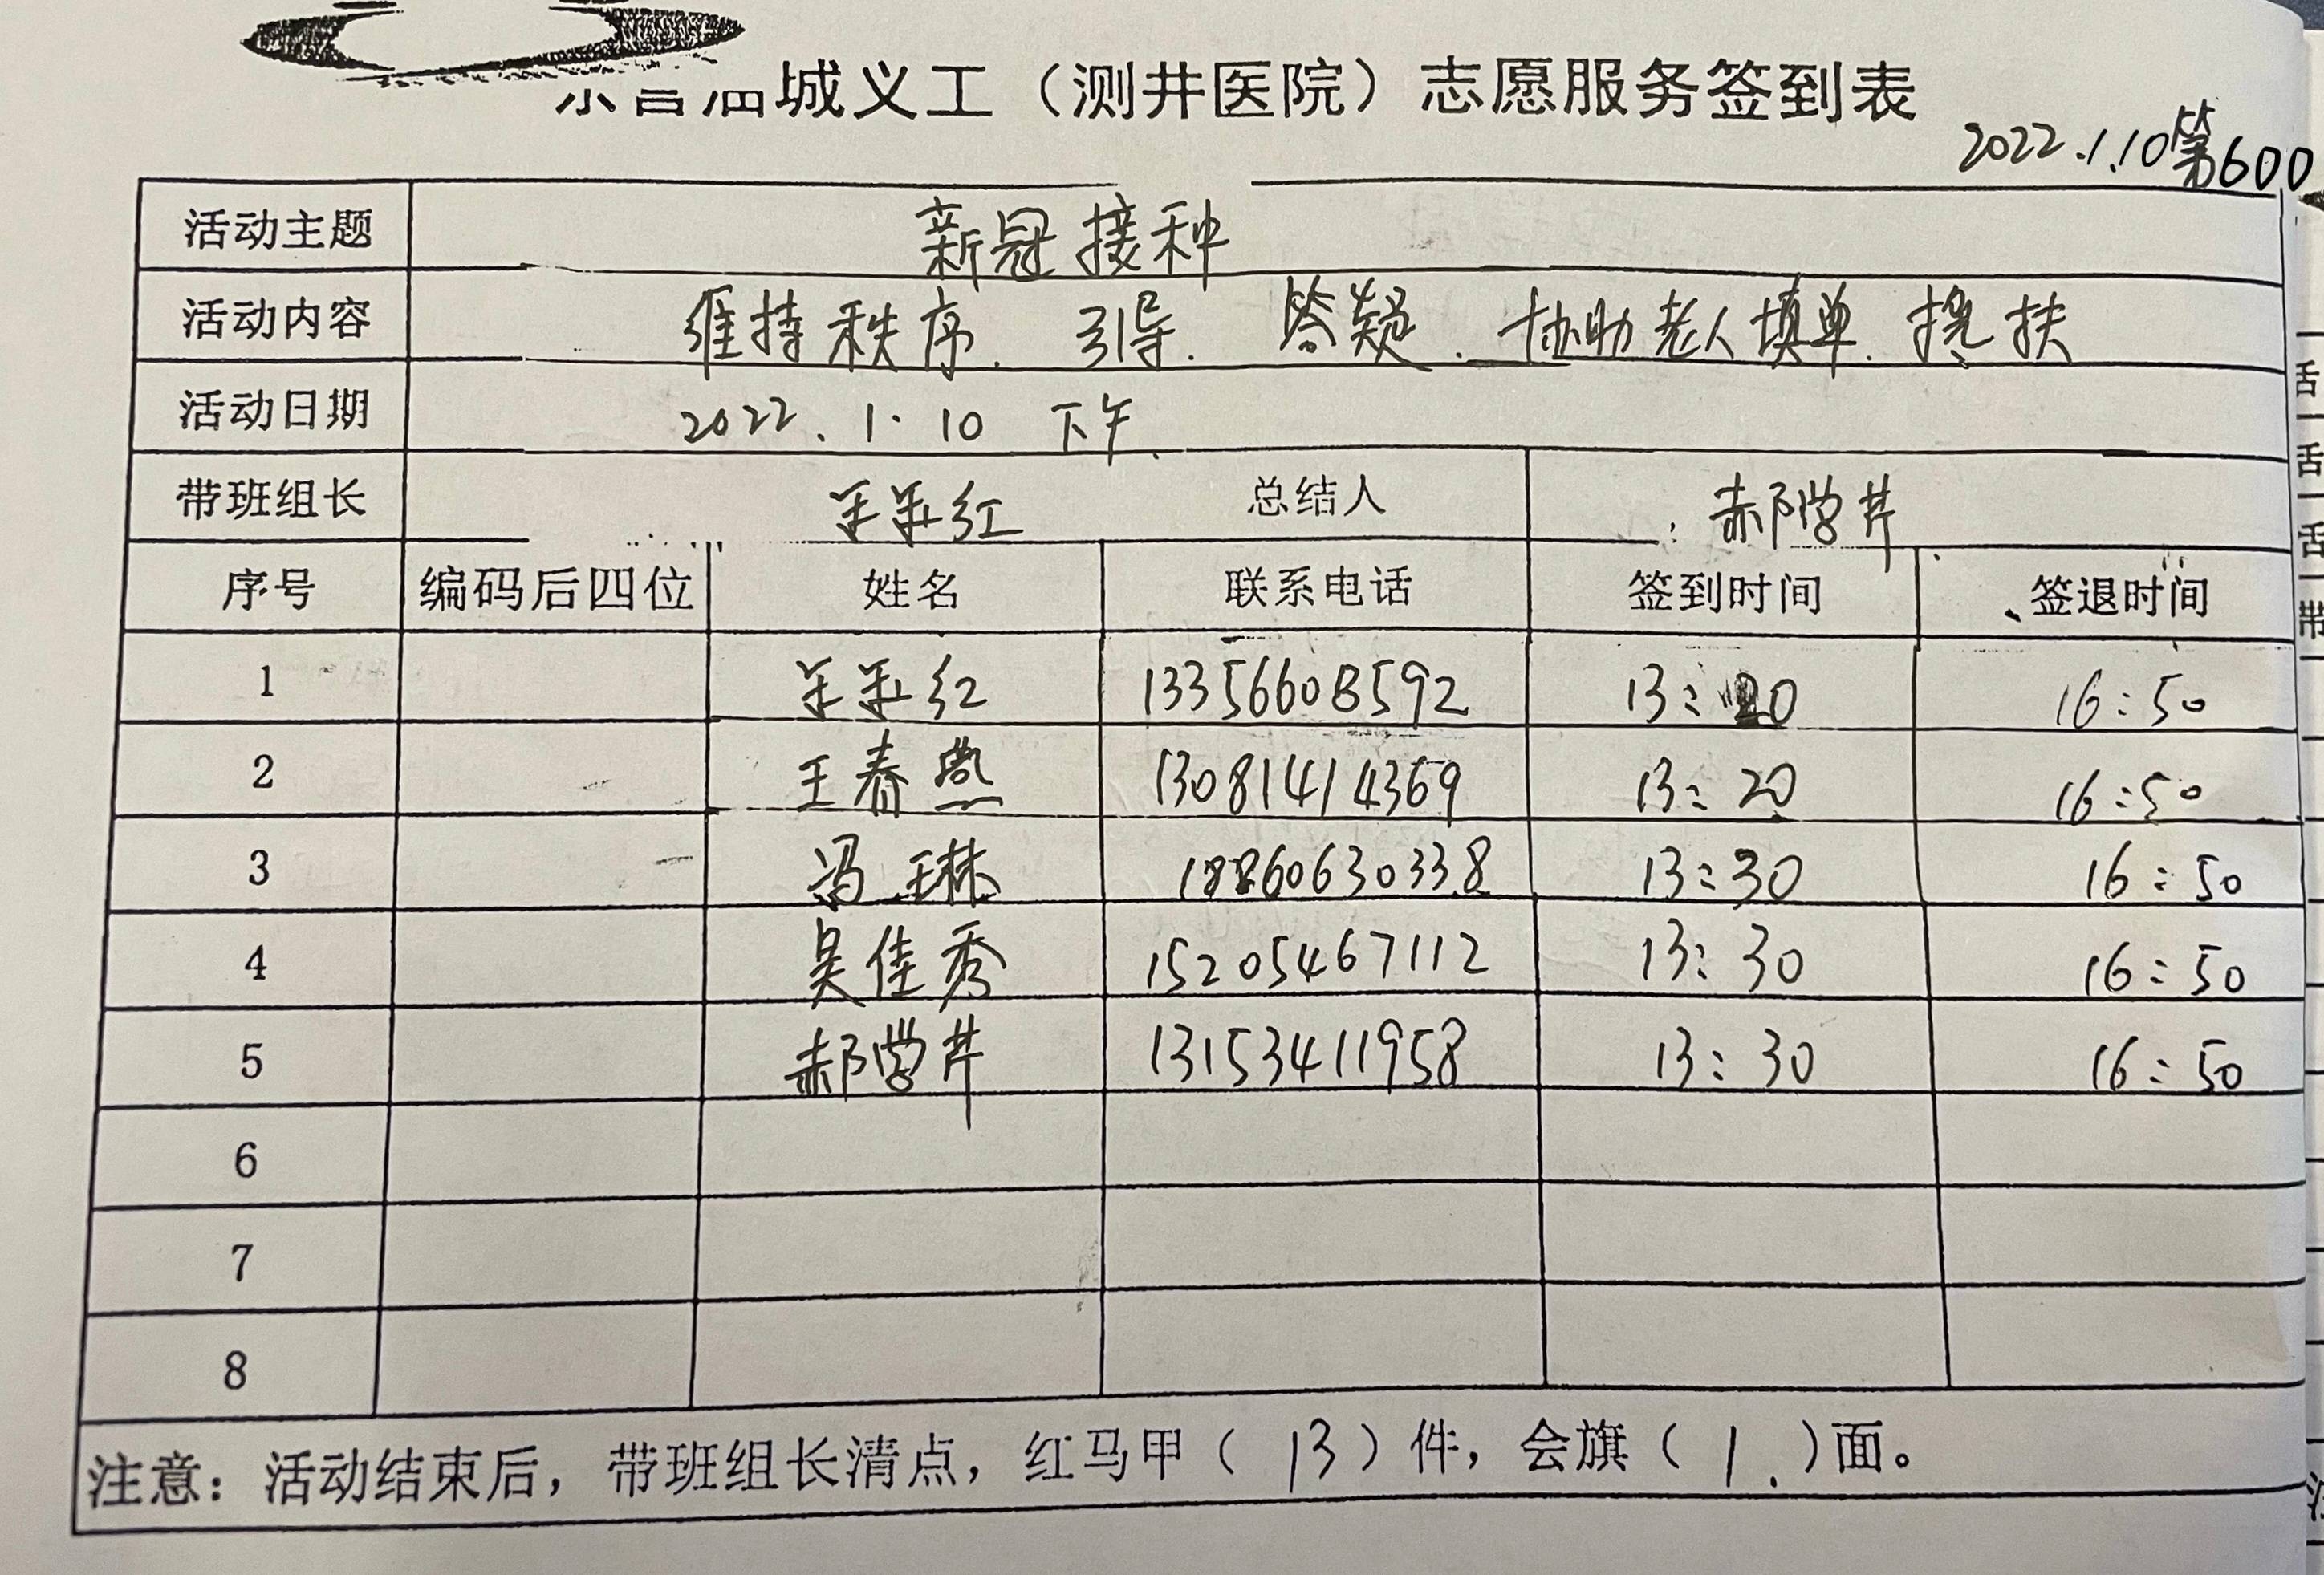 城义工（测井医院）志愿服务签到表
2022.1.10第600
活动主题 新冠接种
活动内容 维持秩序. 引导. 答疑. 协助老人填单. 搀扶
活动日期 2022.1.10 下午
带班组长 红 总结人 郝学芹
序号 编码后四位 姓名 联系电话 签到时间 签退时间
1 红 13356608592 13:20 16:50
2 王春燕 13081414369 13:20 16:50
3 冯琳 18860630338 13:30 16:50
4 吴佳秀 15205467112 13:30 16:50
5 郝学芹 13153411958 13:30 16:50
6
7
8
注意：活动结束后，带班组长清点，红马甲（13）件，会旗（1.）面。